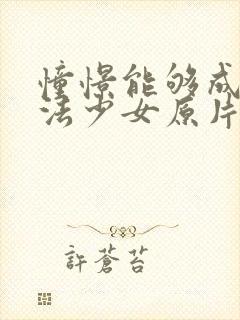 憧憬能够成
法少女原片
許蒼苔